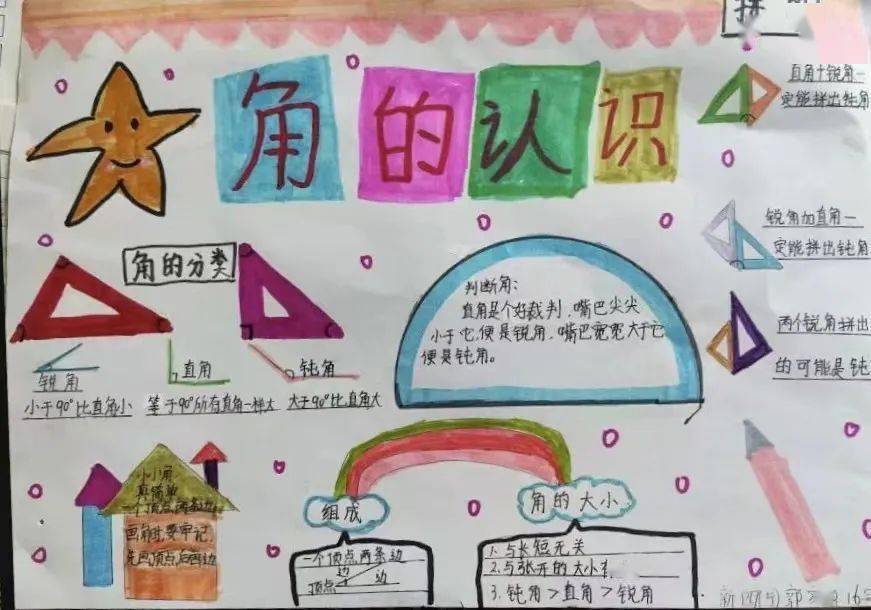 拼
角的认识
直角+锐角一
定能拼出钝角
角的分类
锐角加直角一
定能拼出钝角
判断角:
直角是个好裁判,嘴巴尖尖
小于它,便是锐角,嘴巴宽宽大于它
便是钝角。
两个锐角拼出
的可能是钝
锐角
直角
钝角
小于90°比直角小
等于90°所有直角一样大
大于90°比直角大
小小角
真简单
一个顶点两条边
画角时要牢记
先画顶点后画边
组成
角的大小
一个顶点两条边
边
顶点
边
1.与长短无关
2.与张开的大小
3.钝角>直角>锐角